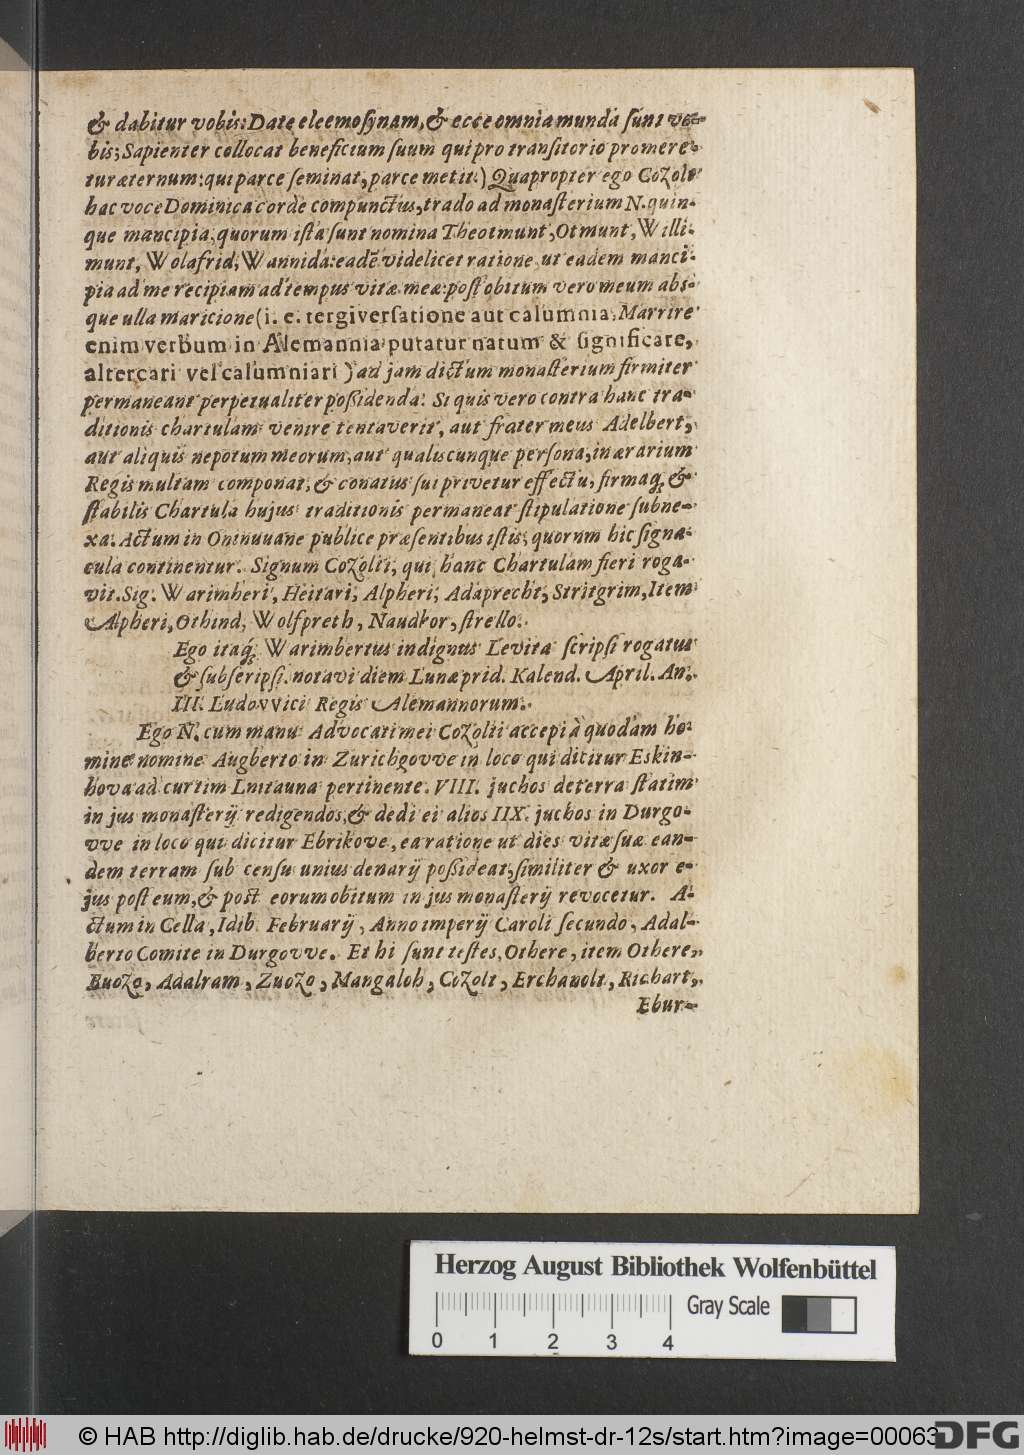 & dabitur vobis: Date eleemosynam, & ecce omnia munda sunt vo-
bis; Sapienter collocat beneficium suum qui pro transitorio promere-
tur æternum: qui parce seminat, parce metit.) Quapropter ego Cozolt
hac voce Dominica corde compunctus, trado ad monasterium N. quin-
que mancipia, quorum ista sunt nomina Theotmunt, Otmunt, Willi-
munt, Wolafrid, Wannida: eadē videlicet ratione ut eadem manci-
pia ad me recipiam ad tempus vitæ meæ: post obitum vero meum abs-
que ulla maricione (i. e. tergiversatione aut calumnia. Marrire
enim verbum in Alemannia putatur natum & significare,
altercari vel calumniari) ad jam dictum monasterium firmiter
permaneant perpetualiter possidenda. Si quis vero contra hanc tra-
ditionis chartulam venire tentaverit, aut frater meus Adelbert,
aut aliquis nepotum meorum, aut qualiscunque persona, in ærarium
Regis multam componat, & conatus sui privetur effectu, firmaq; &
stabilis Chartula hujus traditionis permaneat stipulatione subne-
xa. Actum in Oninuuane publice præsentibus istis, quorum hic signa-
cula continentur. Signum Cozolti, qui hanc Chartulam fieri roga-
vit. Sig. Warimberi, Heitari, Alpheri, Adaprecht, Stritgrim, Item
Alpheri, Othind, Wolfpreth, Naudkor, strello.
Ego itaq; Warimbertus indignus Levita scripsi rogatus
& subscripsi. notavi diem Lunæ prid. Kalend. April. An.
III. Ludovvici Regis Alemannorum.
Ego N. cum manu Advocati mei Cozolti accepi à quodam ho-
mine nomine Augberto in Zurichgovve in loco qui dicitur Eskin-
hova ad curtim Lnitauna pertinente. VIII. juchos de terra statim
in jus monasterij redigendos, & dedi ei alios IIX. juchos in Durgo-
vve in loco qui dicitur Ebrikove, ea ratione ut dies vitæ suæ ean-
dem terram sub censu unius denarij possideat, similiter & uxor e-
jus post eum, & post eorum obitum in jus monasterij revocetur. A-
ctum in Cella, Idib. Februarij, Anno imperij Caroli secundo, Adal-
berto Comite in Durgovve. Et hi sunt testes, Othere, item Othere,
Buozo, Adalram, Zuozo, Mangaloh, Cozolt, Erchanolt, Richart,
Ebur-
Herzog August Bibliothek Wolfenbüttel
Gray Scale
0 1 2 3 4
© HAB http://diglib.hab.de/drucke/920-helmst-dr-12s/start.htm?image=00063
DFG